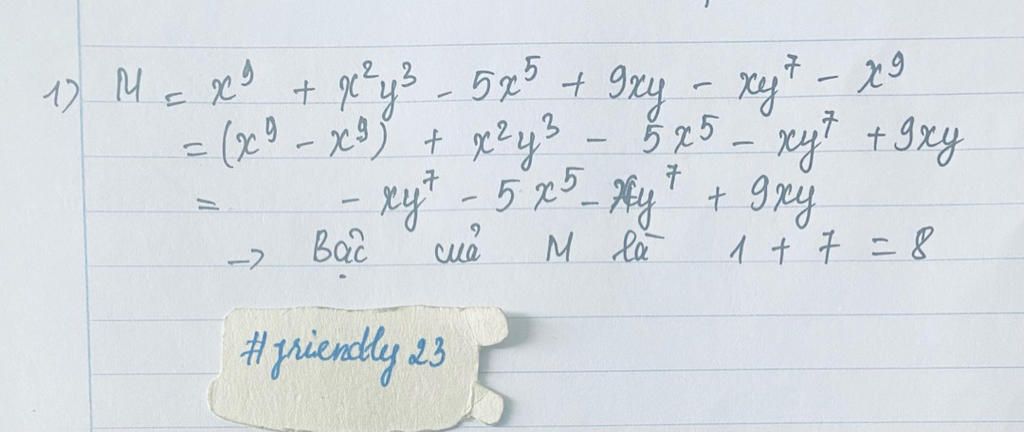 1) M = x⁹ + x²y³ - 5x⁵ + 9xy - xy⁷ - x⁹
= (x⁹ - x⁹) + x²y³ - 5x⁵ - xy⁷ + 9xy
= - xy⁷ - 5x⁵ - xy⁷ + 9xy
→ Bậc của M là 1 + 7 = 8
#friendly 23